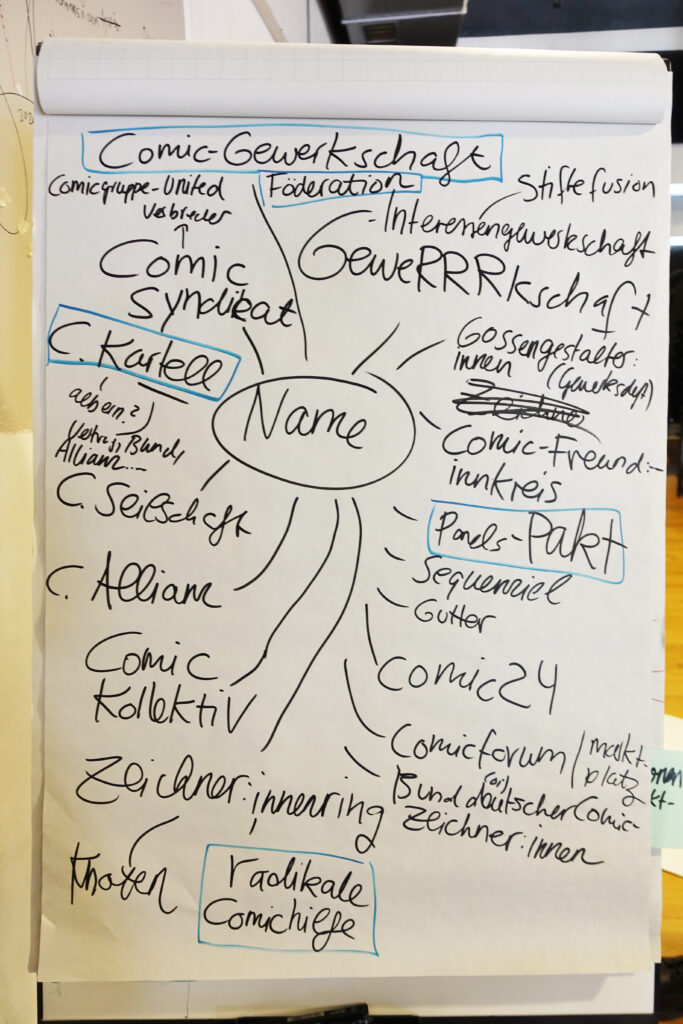 Comic-Gewerkschaft
Föderation
Comicgruppe-United
Verbrecher
Stiftefusion
- Interessengewerkschaft
GeweRRRkschaft
Comic
Syndikat
C. Kartell
albern?
Bund,
Allianz...
Name
Gossengestalter:
innen
(Gewerkschaft)
Comic-Freund:-
innkreis
Panels-Pakt
Sequenziel
Gutter
C. Seilschaft
C. Allianz
Comic
Kollektiv
Comic24
Comicforum / markt-
platz
Bund deutscher Comic-
Zeichner:innen
Zeichner:innenring
Knoten
radikale
Comichilfe